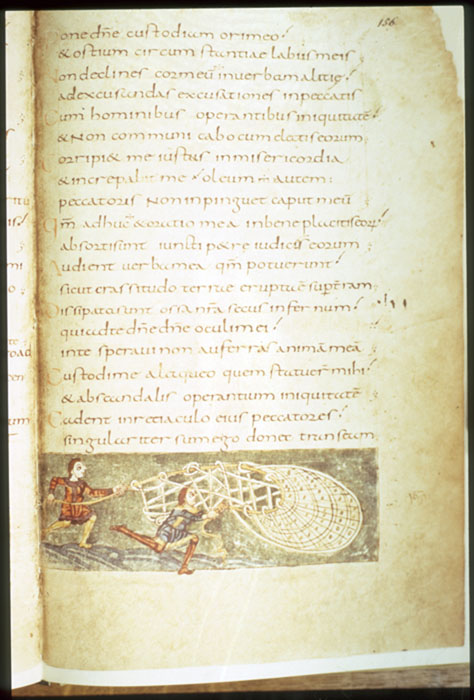 156
Pone dñe custodiam ori meo
& ostium circumstantiae labiis meis
Non declines cor meū in verba malitię
ad excusandas excusationes in peccatis
Cum hominibus operantibus iniquitatē
& Non communicabo cum electis eorum
Corripi& me iustus in misericordia
& increpabit me oleum autem
peccatoris Non inpinguet caput meū
Qm̄ adhuc & oratio mea in beneplacitis eorꝝ
absorti sunt iuncti petre iudices eorum
Audient verba mea qm̄ potuerunt
sicut crassitudo terre erupta ē
Dissipata sunt ossa nr̄a secus infernum
quia ad te dñe dñe oculi mei
in te speravi non auferas animā meā
Custodi me a laqueo quem statuer̄ mihi
& ab scandalis operantium iniquitatē
Cadent in retiaculo eius peccatores
singulariter sum ego donec transeam